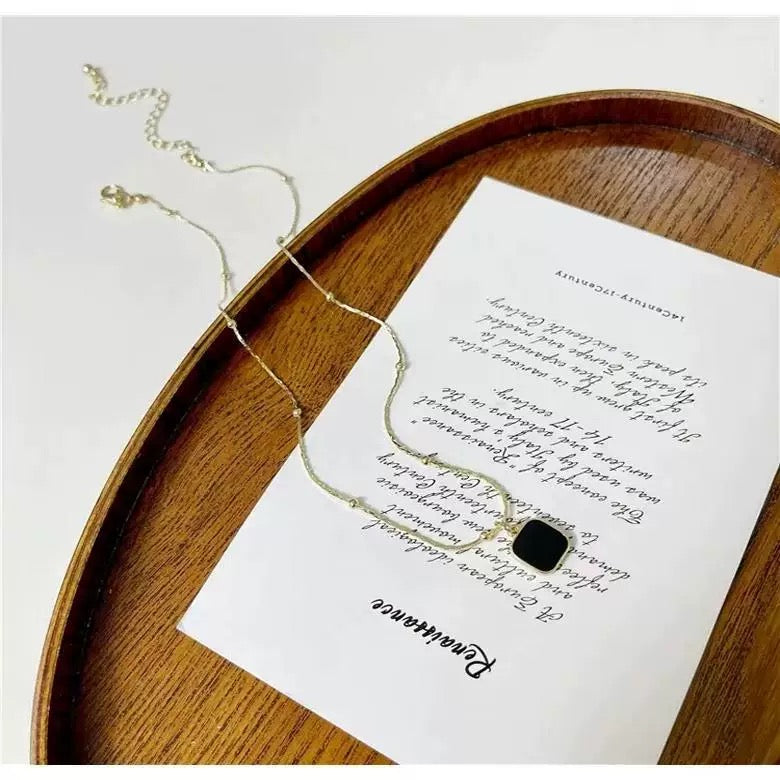 Renaissance
A European ideological
and cultural movement
reflec new bourgeoisie
demand Century
to seventeenth Century
The concept of "Renaissance"
was used by Italy's humanist
writers and scholars in the
14-17 century.
It first grew up in various cities
of Italy. Then expanded to
Western Europe and reached
its peak in sixteenth Century.
14Century-17Century